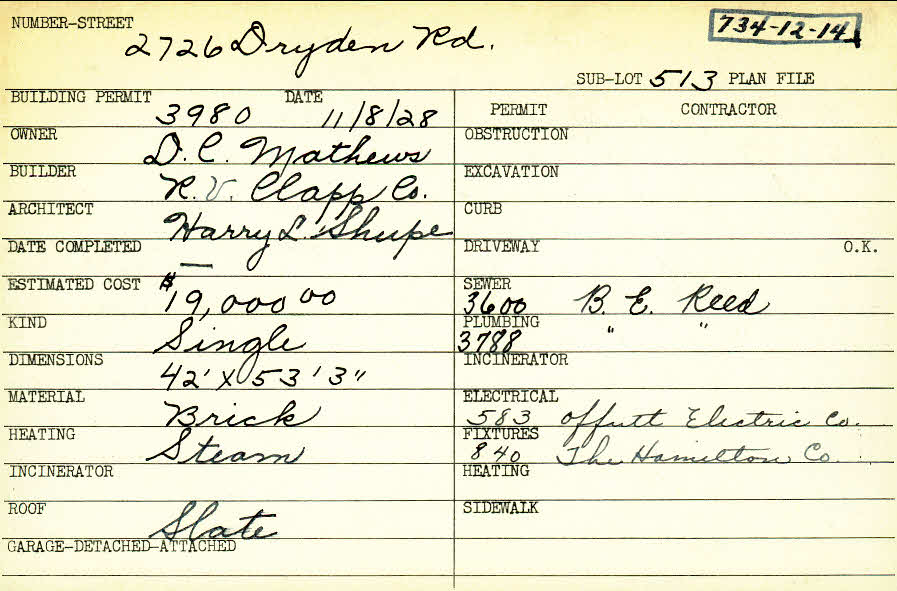 NUMBER-STREET
2726 Dryden Rd.
734-12-14
SUB-LOT 513 PLAN FILE
BUILDING PERMIT 3980 DATE 11/8/28
PERMIT CONTRACTOR
OWNER D. C. Mathews
OBSTRUCTION
BUILDER R. V. Clapp Co.
EXCAVATION
ARCHITECT Harry L. Shupe
CURB
DATE COMPLETED —
DRIVEWAY O.K.
ESTIMATED COST $19,000 00
SEWER 3600 B. E. Reed
KIND Single
PLUMBING 3788 " "
DIMENSIONS 42' X 53' 3"
INCINERATOR
MATERIAL Brick
ELECTRICAL 583 Offutt Electric Co.
HEATING Steam
FIXTURES 840 The Hamilton Co.
INCINERATOR
HEATING
ROOF Slate
SIDEWALK
GARAGE-DETACHED-ATTACHED